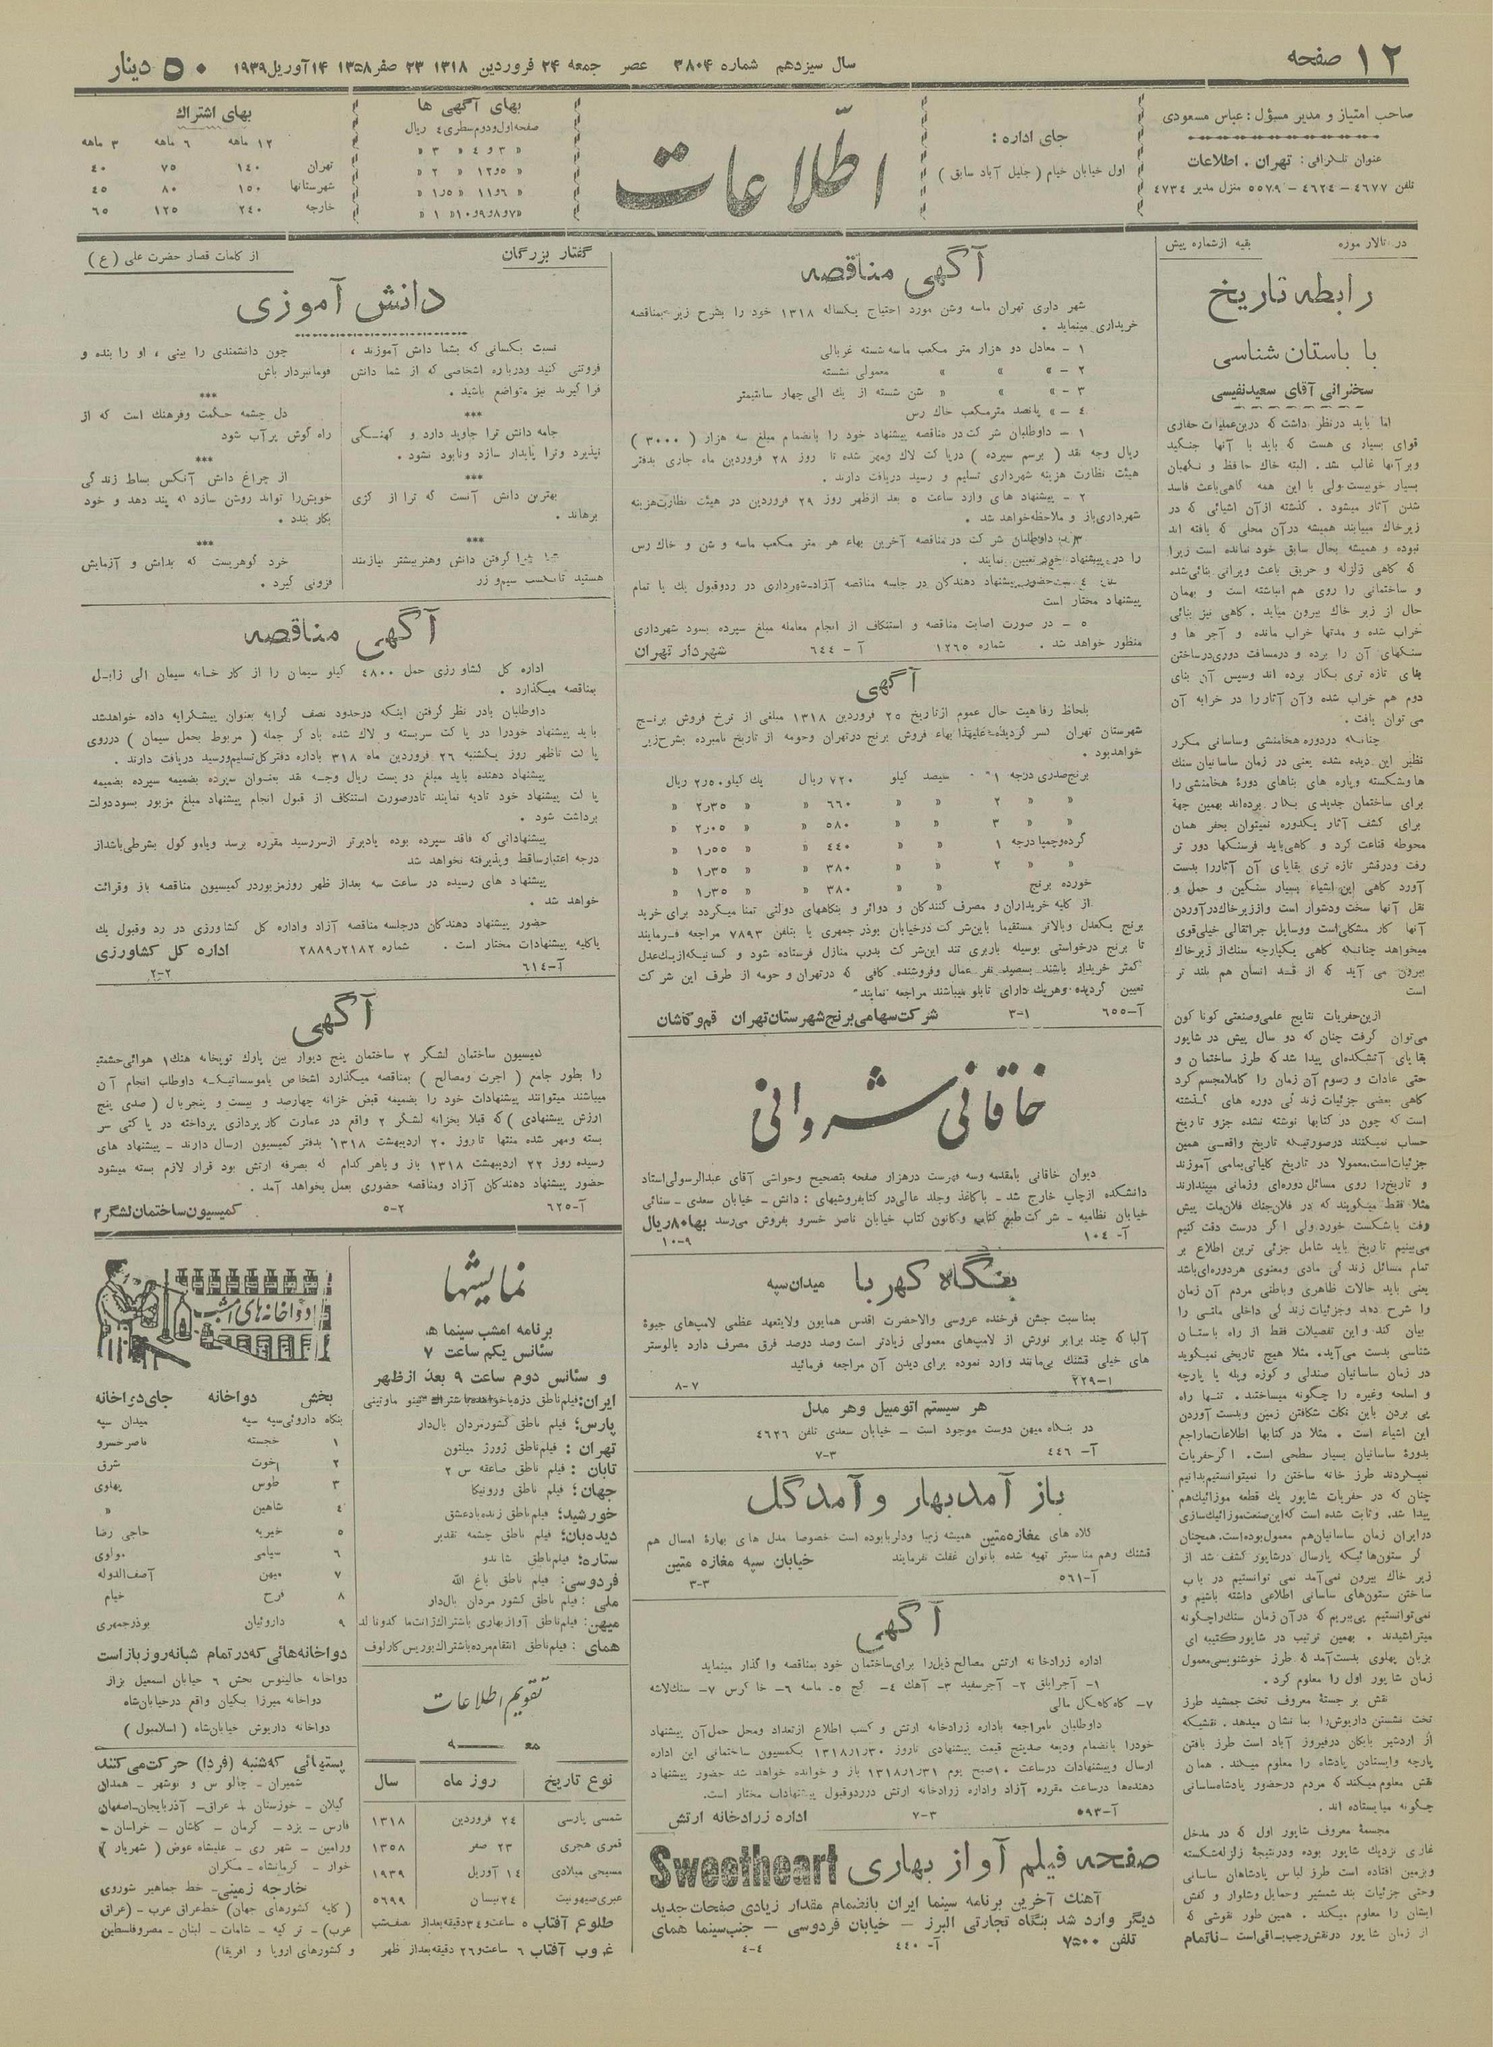 ۱۲ صفحه
سال سیزدهم شماره ۳۸۰۴ عصر جمعه ۲۴ فروردین ۱۳۱۸ ۲۳ صفر ۱۳۵۸ ۱۴ آوریل ۱۹۳۹
۵۰ دینار
صاحب امتیاز و مدیر مسؤل : عباس مسعودی
عنوان تلگرافی : تهران . اطلاعات
تلفن ۴۶۷۷ – ۴۶۲۴ – ۵۵۷۹ منزل مدیر ۴۷۳۴
جای اداره :
اول خیابان خیام ( جلیل آباد سابق )
اطلاعات
بهای آگهی ها
صفحه اول و دوم سطری ٤ ریال
» ۳ و ٤ » ۳ »
» ۵ و ۱۲ » ۲ »
» ۶ و ۱۱ » ۱٫۵ »
» ۷ و ۸ و ۹ و ۱۰ » ۱ »
بهای اشتراک
۱۲ ماهه ۶ ماهه ۳ ماهه
تهران ۱۴۰ ۷۵ ۴۰
شهرستانها ۱۵۰ ۸۰ ۴۵
خارجه ۲۴۰ ۱۲۵ ۶۵
در تالار موزه بقیه از شماره پیش
رابطه تاریخ
با باستان شناسی
سخنرانی آقای سعید نفیسی
اما باید در نظر داشت که درین عملیات حفاری
قوای بسیاری هست که باید با آنها جنگید
و بر آنها غالب شد . البته خاک حافظ و نگهبان
بسیار خوبیست ولی با این همه گاهی باعث فاسد
شدن آثار میشود . گذشته از آن اشیائی که در
زیر خاک مییابند همیشه در آن محلی که بافته اند
نبوده و همیشه بحال سابق خود نمانده است زیرا
که گاهی زلزله و حریق باعث ویرانی بنائی شده
و ساختمانی را روی هم انباشته است و بهمان
حال از زیر خاک بیرون میاید . گاهی نیز بنائی
خراب شده و مدتها خراب مانده و آجر ها و
سنگهای آن را برده و در مسافت دوری در ساختن
بنای تازه تری بکار برده اند و سپس آن بنای
دوم هم خراب شده و آن آثار را در خرابه آن
می توان یافت .
چنانکه در دوره هخامنشی و ساسانی مکرر
نظیر این دیده شده یعنی در زمان ساسانیان سنگ
ها و شکسته و پاره های بناهای دورهٔ هخامنشی را
برای ساختمان جدیدی بکار برده‌اند بهمین جهة
برای کشف آثار یکدوره نمیتوان بحفر همان
محوطه قناعت کرد و گاهی باید فرسنگها دور تر
رفت و در قشر تازه تری بقایای آن آثار را بدست
آورد گاهی این اشیاء بسیار سنگین و حمل و
نقل آنها سخت و دشوار است و از زیر خاک در آوردن
آنها کار مشکلی است و وسایل جرثقالی خیلی قوی
میخواهد چنانکه گاهی یکپارچه سنگ از زیر خاک
بیرون می آید که از قد انسان هم بلند تر
است
ازین حفریات نتایج علمی و صنعتی گونا گون
می‌توان گرفت چنان که دو سال پیش در شاپور
بقایای آتشکده‌ای پیدا شد که طرز ساختمان و
حتی عادات و رسوم آن زمان را کاملا مجسم کرد
گاهی بعضی جزئیات زندگی دوره های گذشته
است که چون در کتابها نوشته نشده جزو تاریخ
حساب نمیکنند در صورتیکه تاریخ واقعی همین
جزئیات است . معمولا در تاریخ کلیاتی بما می آموزند
و تاریخ را روی مسائل دوره‌ای و زمانی میپندارند
مثلا فقط میگویند که در فلان جنگ فلان ملت پیش
رفت یا شکست خورد ولی اگر درست دقت کنیم
می‌بینیم تاریخ باید شامل جزئی ترین اطلاع بر
تمام مسائل زندگی مادی و معنوی هر دوره‌ای باشد
یعنی باید حالات ظاهری و باطنی مردم آن زمان
را شرح دهد و جزئیات زندگی داخلی ملتی را
بیان کند و این تفصیلات فقط از راه باستان
شناسی بدست می‌آید . مثلا هیچ تاریخی نمیگوید
در زمان ساسانیان صندلی و کوزه و پله یا پارچه
و اسلحه و غیره را چگونه میساختند . تنها راه
پی بردن باین نکات شکافتن زمین و بدست آوردن
این اشیاء است . مثلا در کتابها اطلاعات ما راجع
بدورهٔ ساسانیان بسیار سطحی است . اگر حفریات
نمیکردند طرز خانه ساختن را نمیتوانستیم بدانیم
چنان که در حفریات شاپور یک قطعه موزائیک هم
پیدا شد . و ثابت شده است که این صنعت موزائیک سازی
در ایران زمان ساسانیان هم معمول بوده است . همچنان
گر ستون هائیکه پارسال در شاپور کشف شد از
زیر خاک بیرون نمی‌آمد نمی توانستیم در باب
ساختن ستونهای ساسانی اطلاعی داشته باشیم و
نمی‌توانستیم پی‌ببریم که در آن زمان سنگ را چگونه
میتراشیدند . بهمین ترتیب در شاپور کتیبه ای
بزبان پهلوی بدست آمد که طرز خوشنویسی معمول
زمان شاپور اول را معلوم کرد .
نقش بر جستهٔ معروف تخت جمشید طرز
تخت نشستن داریوش را بما نشان میدهد . نقشیکه
از اردشیر بابکان در فیروز آباد است طرز بافتن
پارچه و ایستادن پادشاه را معلوم میکند . همان
نقش معلوم میکند که مردم در حضور پادشاه ساسانی
چگونه میایستاده اند .
مجسمهٔ معروف شاپور اول که در مدخل
غاری نزدیک شاپور بوده و در نتیجهٔ زلزله شکسته
و بزمین افتاده است طرز لباس پادشاهان ساسانی
و حتی جزئیات بند شمشیر و حمایل و شلوار و کفش
ایشان را معلوم میکند . همین طور نقوشی که
از زمان شاپور در نقش رجب باقی است – ناتمام
آگهی مناقصه
شهر داری تهران ماسه و شن مورد احتیاج یکساله ۱۳۱۸ خود را بشرح زیر بمناقصه
خریداری مینماید .
۱ – معادل دو هزار متر مکعب ماسه شسته غربالی
۲ – » » » معمولی نشسته
۳ – » » » شن شسته از یک الی چهار سانتیمتر
٤ – » پانصد متر مکعب خاک رس
۱ – داوطلبان شرکت در مناقصه پیشنهاد خود را بانضمام مبلغ سه هزار ( ۳۰۰۰ )
ریال وجه نقد ( برسم سپرده ) در پاکت لاک و مهر شده تا روز ۲۸ فروردین ماه جاری بدفتر
هیئت نظارت هزینه شهرداری تسلیم و رسید دریافت دارند .
۲ – پیشنهاد های وارد ساعت ۵ بعد از ظهر روز ۲۹ فروردین در هیئت نظارت هزینه
شهرداری باز و ملاحظه خواهد شد .
۳ – داوطلبان شرکت در مناقصه آخرین بهاء هر متر مکعب ماسه و شن و خاک رس
را در پیشنهاد خود تعیین نمایند .
٤ – حضور پیشنهاد دهندگان در جلسه مناقصه آزاد – شهرداری در رد و قبول یک یا تمام
پیشنهاد مختار است
۵ – در صورت اصابت مناقصه و استنکاف از انجام معامله مبلغ سپرده بسود شهرداری
منظور خواهد شد . شماره ۱۲۶۵ آ – ۶۴۴ شهردار تهران
آگهی
بلحاظ رفاهیت حال عموم از تاریخ ۲۵ فروردین ۱۳۱۸ مبلغی از نرخ فروش برنج
شهرستان تهران کسر گردیده علیهذا بهاء فروش برنج در تهران و حومه از تاریخ نامبرده بشرح زیر
خواهد بود .
برنج صدری درجه ۱ سیصد کیلو ۷۲۰ ریال یک کیلو ۲٫۵۰ ریال
» » ۲ » » ۶۶۰ » » ۲٫۳۵ »
» » ۳ » » ۵۸۰ » » ۲٫۰۵ »
گرده و چمپا درجه ۱ » » ۴۴۰ » » ۱٫۵۵ »
» » ۲ » » ۳۸۰ » » ۱٫۳۵ »
خورده برنج » » ۳۸۰ » » ۱٫۳۵ »
از کلیه خریداران و مصرف کنندگان و دوائر و بنگاههای دولتی تمنا میگردد برای خرید
برنج یکعدل و بالاتر مستقیما باین شرکت در خیابان بوذر جمهری یا بتلفن ۷۸۹۳ مراجعه فرمایند
تا برنج درخواستی بوسیله باربری تند این شرکت بدرب منازل فرستاده شود و کسانیکه از یک عدل
کمتر خریدار باشند بسیصد نفر عمال و فروشنده کافی که در تهران و حومه از طرف این شرکت
تعیین گردیده و هر یک دارای تابلو میباشند مراجعه نمایند
آ – ۶۵۵ ۳-۱ شرکت سهامی برنج شهرستان تهران قم و کاشان
خاقانی شروانی
دیوان خاقانی با مقدمه و سه فهرست در هزار صفحه بتصحیح و حواشی آقای عبدالرسولی استاد
دانشکده از چاپ خارج شد – با کاغذ و جلد عالی در کتابفروشیهای : دانش – خیابان سعدی – سنائی
خیابان نظامیه – شرکت طبع کتاب و کانون کتاب خیابان ناصر خسرو بفروش می‌رسد بها ۸۰ ریال
آ – ۱۰۴ ۱۰-۹
بنگاه کهربا میدان سپه
بمناسبت جشن فرخنده عروسی والاحضرت اقدس همایون ولایتعهد عظمی لامپ‌های جیوهٔ
آلبا که چند برابر نورش از لامپ‌های معمولی زیادتر است و صد درصد فرق مصرف دارد با لوستر
های خیلی قشنگ بی‌مانند وارد نموده برای دیدن آن مراجعه فرمائید
۱-۲۲۹ ۸-۷
هر سیستم اتومبیل و هر مدل
در بنگاه میهن دوست موجود است – خیابان سعدی تلفن ۴۶۲۶
آ – ۴۴۶ ۷-۳
باز آمد بهار و آمد گل
کلاه های مغازه متین همیشه زیبا و دلربا بوده است خصوصا مدل های بهارهٔ امسال هم
قشنگ و هم مناسبتر تهیه شده بانوان غفلت نفرمایند خیابان سپه مغازه متین
آ – ۵۶۱ ۳-۳
آگهی
اداره زرادخانه ارتش مصالح ذیل را برای ساختمان خود بمناقصه واگذار مینماید
۱ – آجر ابلق ۲ – آجر سفید ۳ – آهک ٤ – گچ ۵ – ماسه ۶ – خاک رس ۷ – سنگ لاشه
۷ – کاه کاهگل مالی
داوطلبان با مراجعه باداره زرادخانه ارتش و کسب اطلاع از تعداد و محل حمل آن پیشنهاد
خود را بانضمام ودیعه صدی پنج قیمت پیشنهادی تا روز ۱۳۱۸/۱/۳۰ بکمسیون ساختمانی این اداره
ارسال و پیشنهادات در ساعت ۱۰ صبح یوم ۱۳۱۸/۱/۳۱ باز و خوانده خواهد شد حضور پیشنهاد
دهنده‌ها در ساعت مقرره آزاد و اداره زرادخانه ارتش در رد و قبول پیشنهادات مختار است .
آ – ۵۹۳ ۷-۳ اداره زرادخانه ارتش
صفحه فیلم آواز بهاری Sweetheart
آهنگ آخرین برنامه سینما ایران بانضمام مقدار زیادی صفحات جدید
دیگر وارد شد بنگاه تجارتی البرز – خیابان فردوسی – جنب سینما همای
تلفن ۷۵۰۰ آ – ۴۴۰ ۴-۴
گفتار بزرگان از کلمات قصار حضرت علی ( ع )
دانش آموزی
نسبت بکسانی که بشما دانش آموزند ،
فروتنی کنید و درباره اشخاصی که از شما دانش
فرا گیرند نیز متواضع باشید .
***
جامه دانش ترا جاوید دارد و کهنگی
نپذیرد و ترا پایدار سازد و نابود نشود .
***
بهترین دانش آنست که ترا از کژی
برهاند .
***
شما بفرا گرفتن دانش و هنر بیشتر نیازمند
هستید تا بکسب سیم و زر
چون دانشمندی را بینی ، او را بنده و
فرمانبردار باش
***
دل چشمه حکمت و فرهنگ است که از
راه گوش پر آب شود
***
از چراغ دانش آنکس بساط زندگی
خویش را تواند روشن سازد که پند دهد و خود
بکار بندد .
***
خرد گوهریست که بدانش و آزمایش
فزونی گیرد .
آگهی مناقصه
اداره کل کشاورزی حمل ۴۸۰۰ کیلو سیمان را از کارخانه سیمان الی زابل
بمناقصه میگذارد .
داوطلبان با در نظر گرفتن اینکه در حدود نصف کرایه بعنوان پیشکرایه داده خواهد شد
باید پیشنهاد خود را در پاکت سربسته و لاک شده با ذکر جمله ( مربوط بحمل سیمان ) در روی
پاکت تا ظهر روز یکشنبه ۲۶ فروردین ماه ۳۱۸ باداره دفتر کل تسلیم و رسید دریافت دارند .
پیشنهاد دهنده باید مبلغ دویست ریال وجه نقد بعنوان سپرده بضمیمه سپرده بضمیمه
پاکت پیشنهاد خود تادیه نمایند تا در صورت استنکاف از قبول انجام پیشنهاد مبلغ مزبور بسود دولت
برداشت شود .
پیشنهاداتی که فاقد سپرده بوده یا دیرتر از سررسید مقرره برسد و یا موکول بشرطی باشد از
درجه اعتبار ساقط و پذیرفته نخواهد شد
پیشنهاد های رسیده در ساعت سه بعد از ظهر روز مزبور در کمیسیون مناقصه باز و قرائت
خواهد شد .
حضور پیشنهاد دهندگان در جلسه مناقصه آزاد و اداره کل کشاورزی در رد و قبول یک
یا کلیه پیشنهادات مختار است . شماره ۲۸۸۹ر۲۱۸۲ اداره کل کشاورزی
آ – ۶۱۴ ۲-۲
آگهی
کمیسیون ساختمان لشگر ۲ ساختمان پنج دیوار بین پارک توپخانه هنگ ۱ هوائی حشمتیه
را بطور جامع ( اجرت و مصالح ) بمناقصه میگذارد اشخاص یا موسساتیکه داوطلب انجام آن
میباشند میتوانند پیشنهادات خود را بضمیمه قبض خزانه چهارصد و بیست و پنجریال ( صدی پنج
ارزش پیشنهادی ) که قبلا بخزانه لشگر ۲ واقع در عمارت کارپردازی پرداخته در پاکتی سر
بسته و مهر شده منتها تا روز ۲۰ اردیبهشت ۱۳۱۸ بدفتر کمیسیون ارسال دارند – پیشنهاد های
رسیده روز ۲۲ اردیبهشت ۱۳۱۸ باز و با هر کدام که بصرفه ارتش بود قرار لازم بسته میشود
حضور پیشنهاد دهندگان آزاد و مناقصه حضوری بعمل نخواهد آمد .
آ – ۶۲۵ ۵-۲ کمیسیون ساختمان لشگر ۲
نمایشها
برنامه امشب سینما ها
سئانس یکم ساعت ۷
و سئانس دوم ساعت ۹ بعد از ظهر
ایران :
پارس : فیلم ناطق کشور مردان بالدار
تهران : فیلم ناطق ژورژ میلتون
تابان : فیلم ناطق صاعقه س ۲
جهان : فیلم ناطق ورونیکا
خورشید : فیلم ناطق زنده باد عشق
دیده‌بان : فیلم ناطق چشمه تقدیر
ستاره : فیلم ناطق شاندو
فردوسی : فیلم ناطق باغ الله
ملی : فیلم ناطق کشور مردان بال‌دار
میهن : فیلم ناطق آواز بهاری باشتراک ژانت ماکدونالد
همای : فیلم ناطق انتقام مرده باشتراک بوریس کارلوف
تقویم اطلاعات
نوع تاریخ روز ماه سال
شمسی پارسی ۲۴ فروردین ۱۳۱۸
قمری هجری ۲۳ صفر ۱۳۵۸
مسیحی میلادی ۱۴ آوریل ۱۹۳۹
عبری صیهونیت ۲۴ نیسان ۵۶۹۹
طلوع آفتاب ۵ ساعت و ۳۴ دقیقه بعد از نصف شب
غروب آفتاب ۶ ساعت و ۲۶ دقیقه بعد از ظهر
دواخانه‌های امشب
بخش دواخانه جای دواخانه
بنگاه داروئی سپه سپه میدان سپه
۱ خجسته ناصر خسرو
۲ اخوت شرق
۳ طوس پهلوی
٤ شاهین »
۵ خیریه حاجی رضا
۶ سیامی مولوی
۷ میهن آصف الدوله
۸ فرح خیام
۹ داروئیان بوذرجمهری
دواخانه‌هائی که در تمام شبانه روز باز است
دواخانه جالینوس بخش ۶ خیابان اسمعیل بزاز
دواخانه میرزا بکیان واقع در خیابان شاه
دواخانه داریوش خیابان شاه ( اسلامبول )
پستهائی که شنبه (فردا) حرکت می‌کنند
شمیران – چالوس و نوشهر – همدان
گیلان – خوزستان – عراق – آذربایجان – اصفهان
فارس – یزد – کرمان – کاشان – خراسان –
ورامین – شهر ری – علیشاه عوض ( شهریار )
خوار – کرمانشاه – مکران
خارجه زمینی – خط جماهیر شوروی
( کلیه کشورهای جهان) خط عراق عرب – (عراق
عرب) – ترکیه – شامات – لبنان – مصر و فلسطین
و کشورهای اروپا و افریقا)